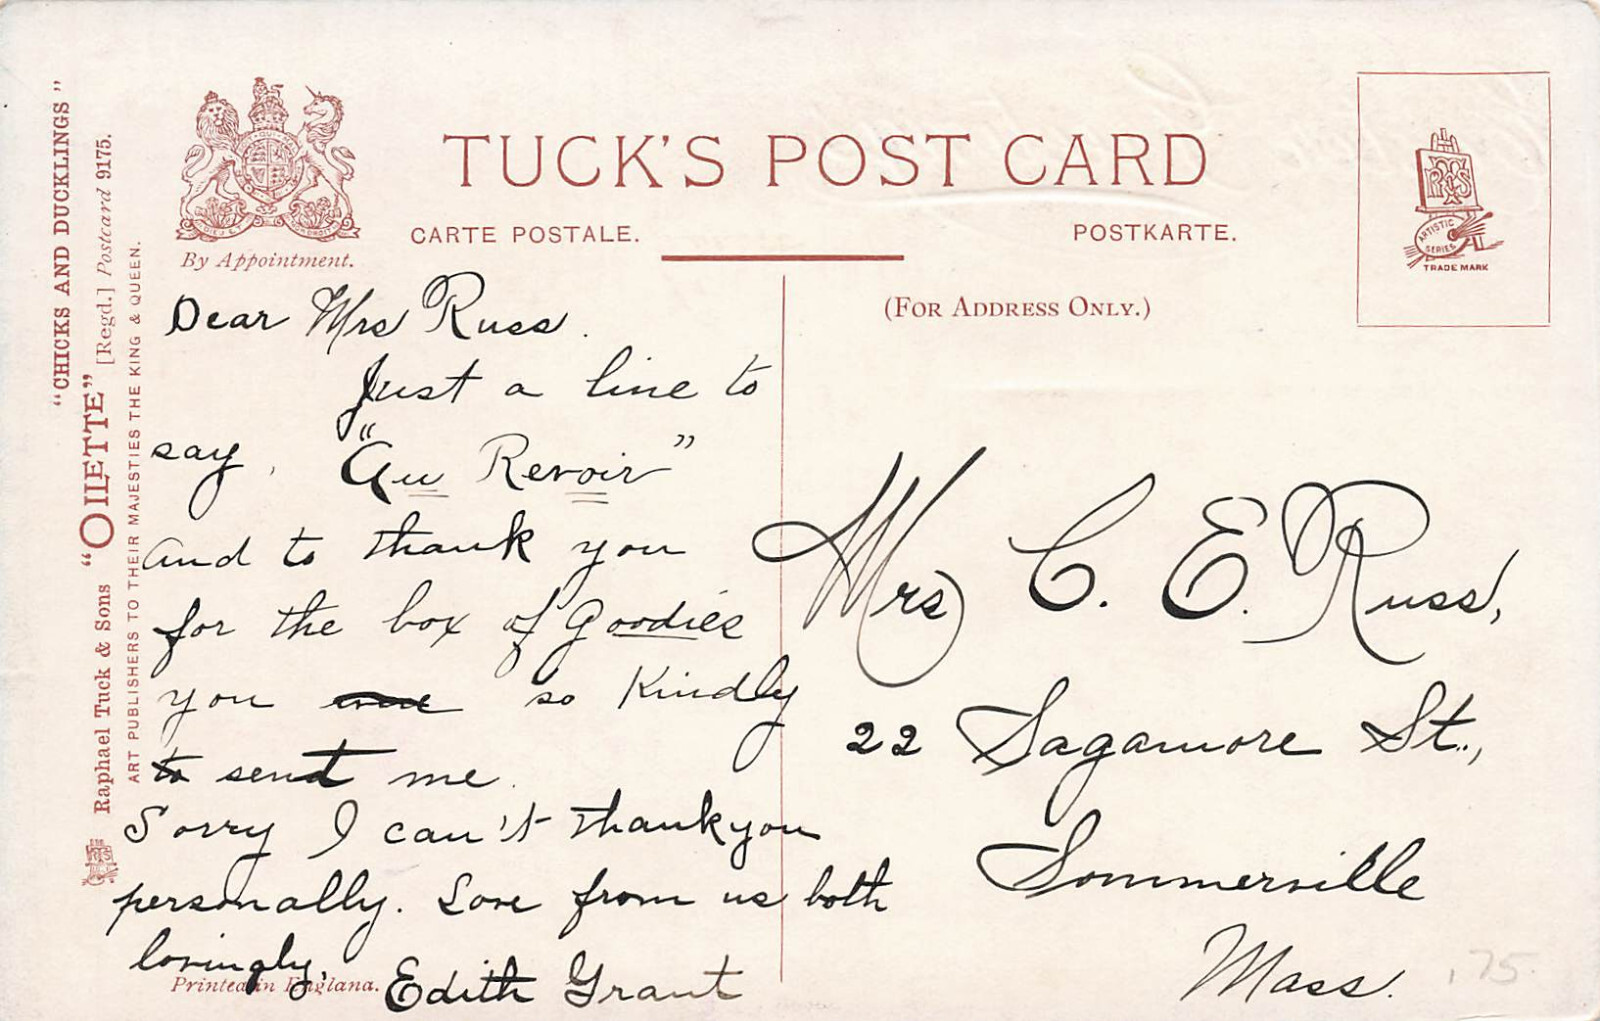 "CHICKS AND DUCKLINGS"
Raphael Tuck & Sons "OILETTE" [Regd.] Postcard 9175.
ART PUBLISHERS TO THEIR MAJESTIES THE KING & QUEEN.
By Appointment.
TUCK'S POST CARD
CARTE POSTALE.
POSTKARTE.
(FOR ADDRESS ONLY.)
ARTISTIC
SERIES
TRADE MARK
Dear Mrs Russ.
Just a line to
say, "Au Revoir"
And to thank you
for the box of Goodies
you so Kindly
to sent me.
Sorry I can't thank you
personally. Love from us both
lovingly,
Edith Grant
Printed in England.
Mrs C. E. Russ,
22 Sagamore St.,
Sommerville
Mass.
.75.